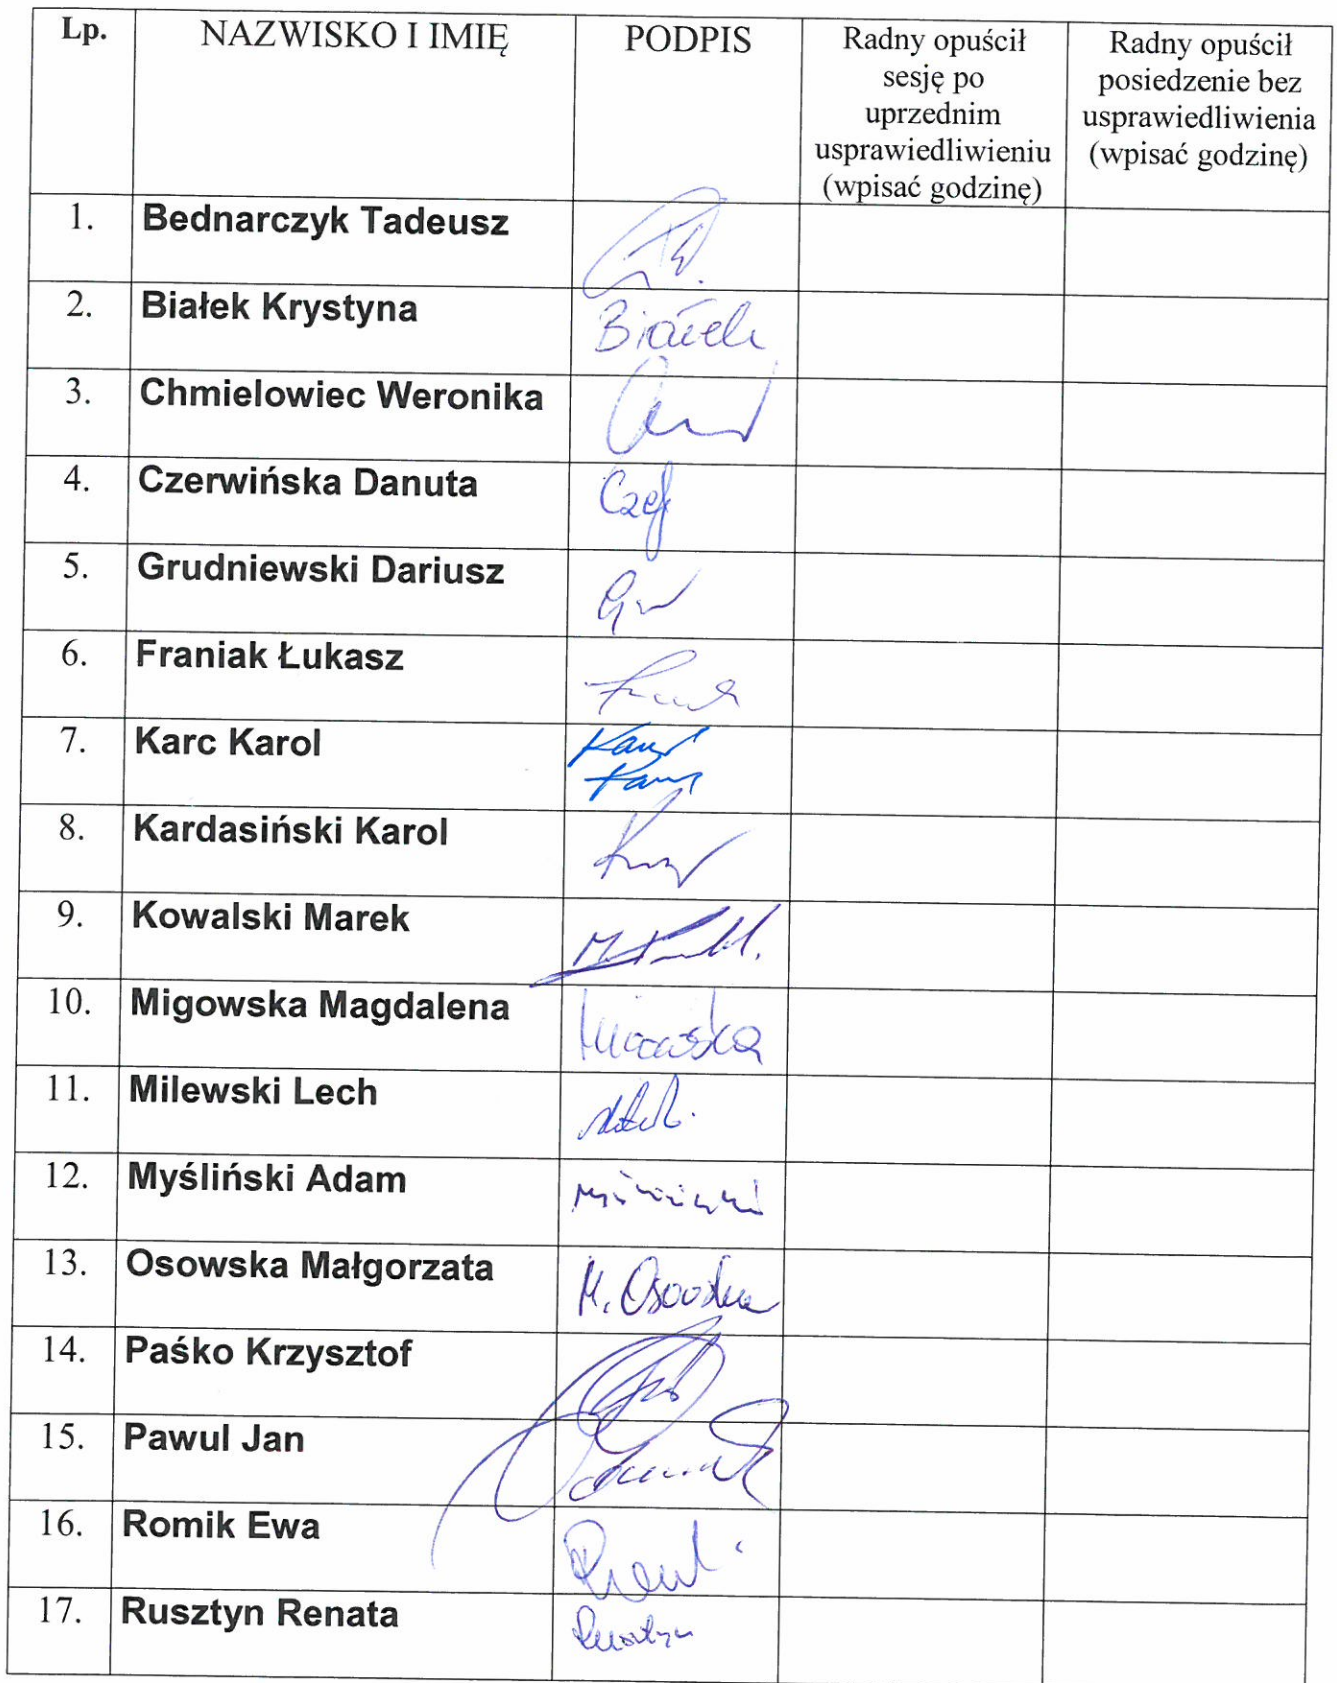 Lp. NAZWISKO I IMIĘ PODPIS Radny opuścił sesję po uprzednim usprawiedliwieniu (wpisać godzinę) Radny opuścił posiedzenie bez usprawiedliwienia (wpisać godzinę)
1. Bednarczyk Tadeusz
2. Białek Krystyna Białek
3. Chmielowiec Weronika
4. Czerwińska Danuta
5. Grudniewski Dariusz
6. Franiak Łukasz
7. Karc Karol
8. Kardasiński Karol
9. Kowalski Marek
10. Migowska Magdalena
11. Milewski Lech
12. Myśliński Adam
13. Osowska Małgorzata M. Osowska
14. Paśko Krzysztof
15. Pawul Jan
16. Romik Ewa
17. Rusztyn Renata Rusztyn